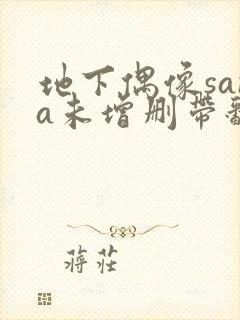 地下偶像sa
a未增删带
蒋莊